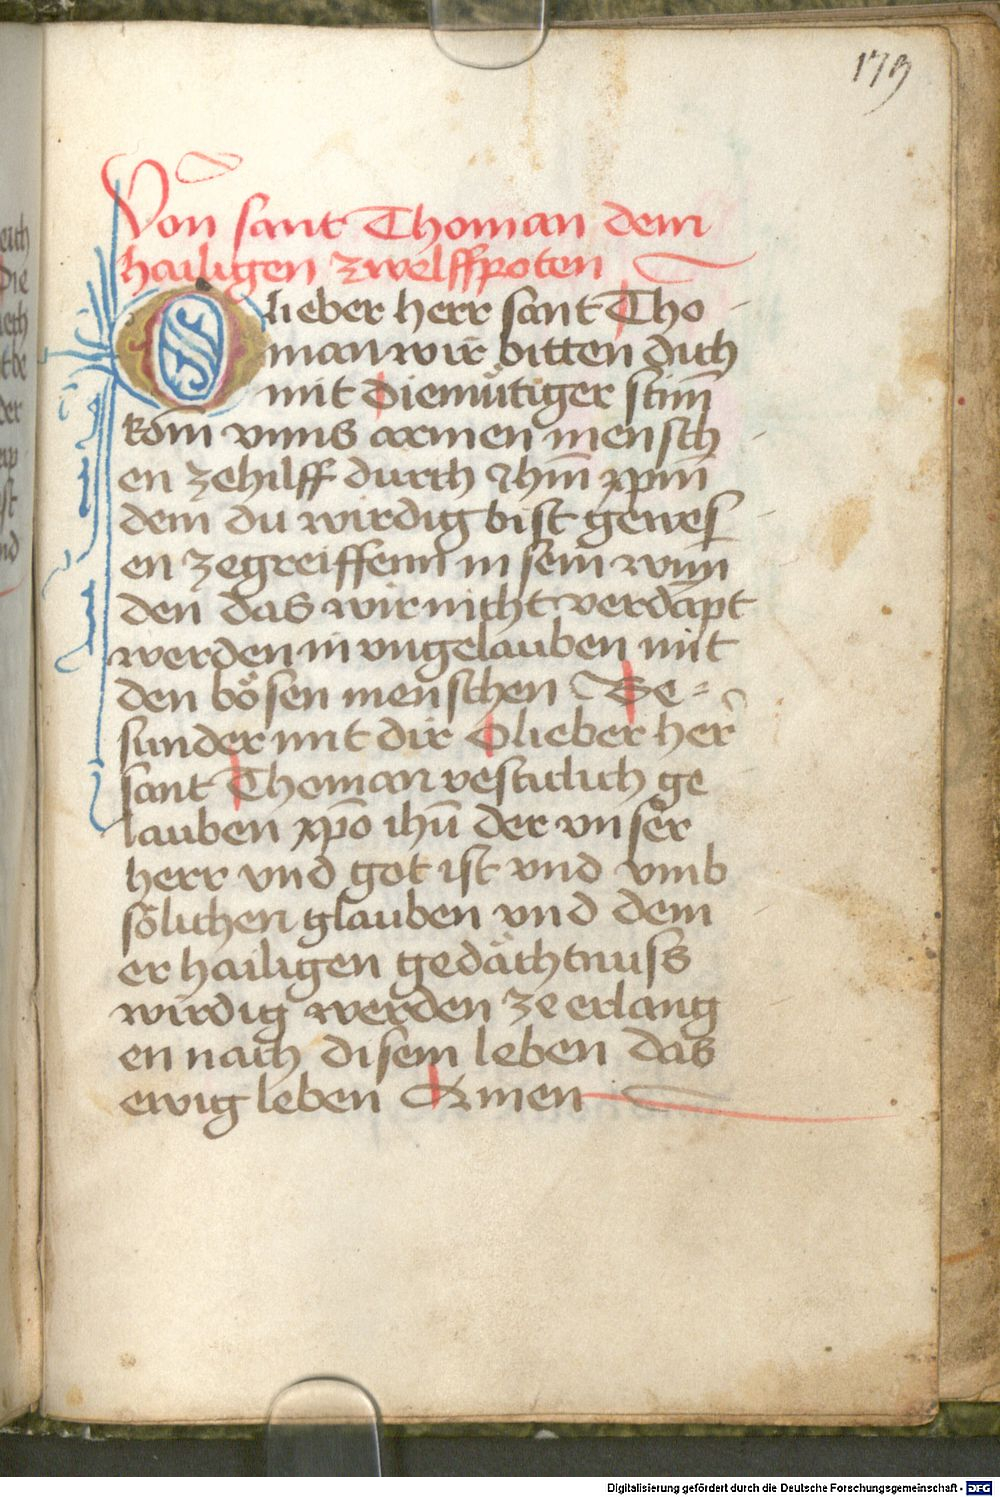 179
Von sant Thoman dem
hailigen zwelffpoten
O lieber herr sant Tho-
man wir bitten dich
mit diemütiger stim̄
kom̄ vnns armen mensch-
en zehilff durch Jhm̄ xp̄m
dem du wirdig bist gewes-
en zegreiffenn in sein wun
den das wir nicht verdāpt
werden in vngelauben mit
den bösen menschen Be=
sunder mit dir O lieber her
sant Thoman vesticlich ge
lauben xp̄o ihū der vnser
herr vnd got ist vnd vmb
sölichen glauben vnd dem
er hailigen gedächtnuss
wirdig werden ze erlang
en nach disem leben das
ewig leben Amen
Digitalisierung gefördert durch die Deutsche Forschungsgemeinschaft - DFG